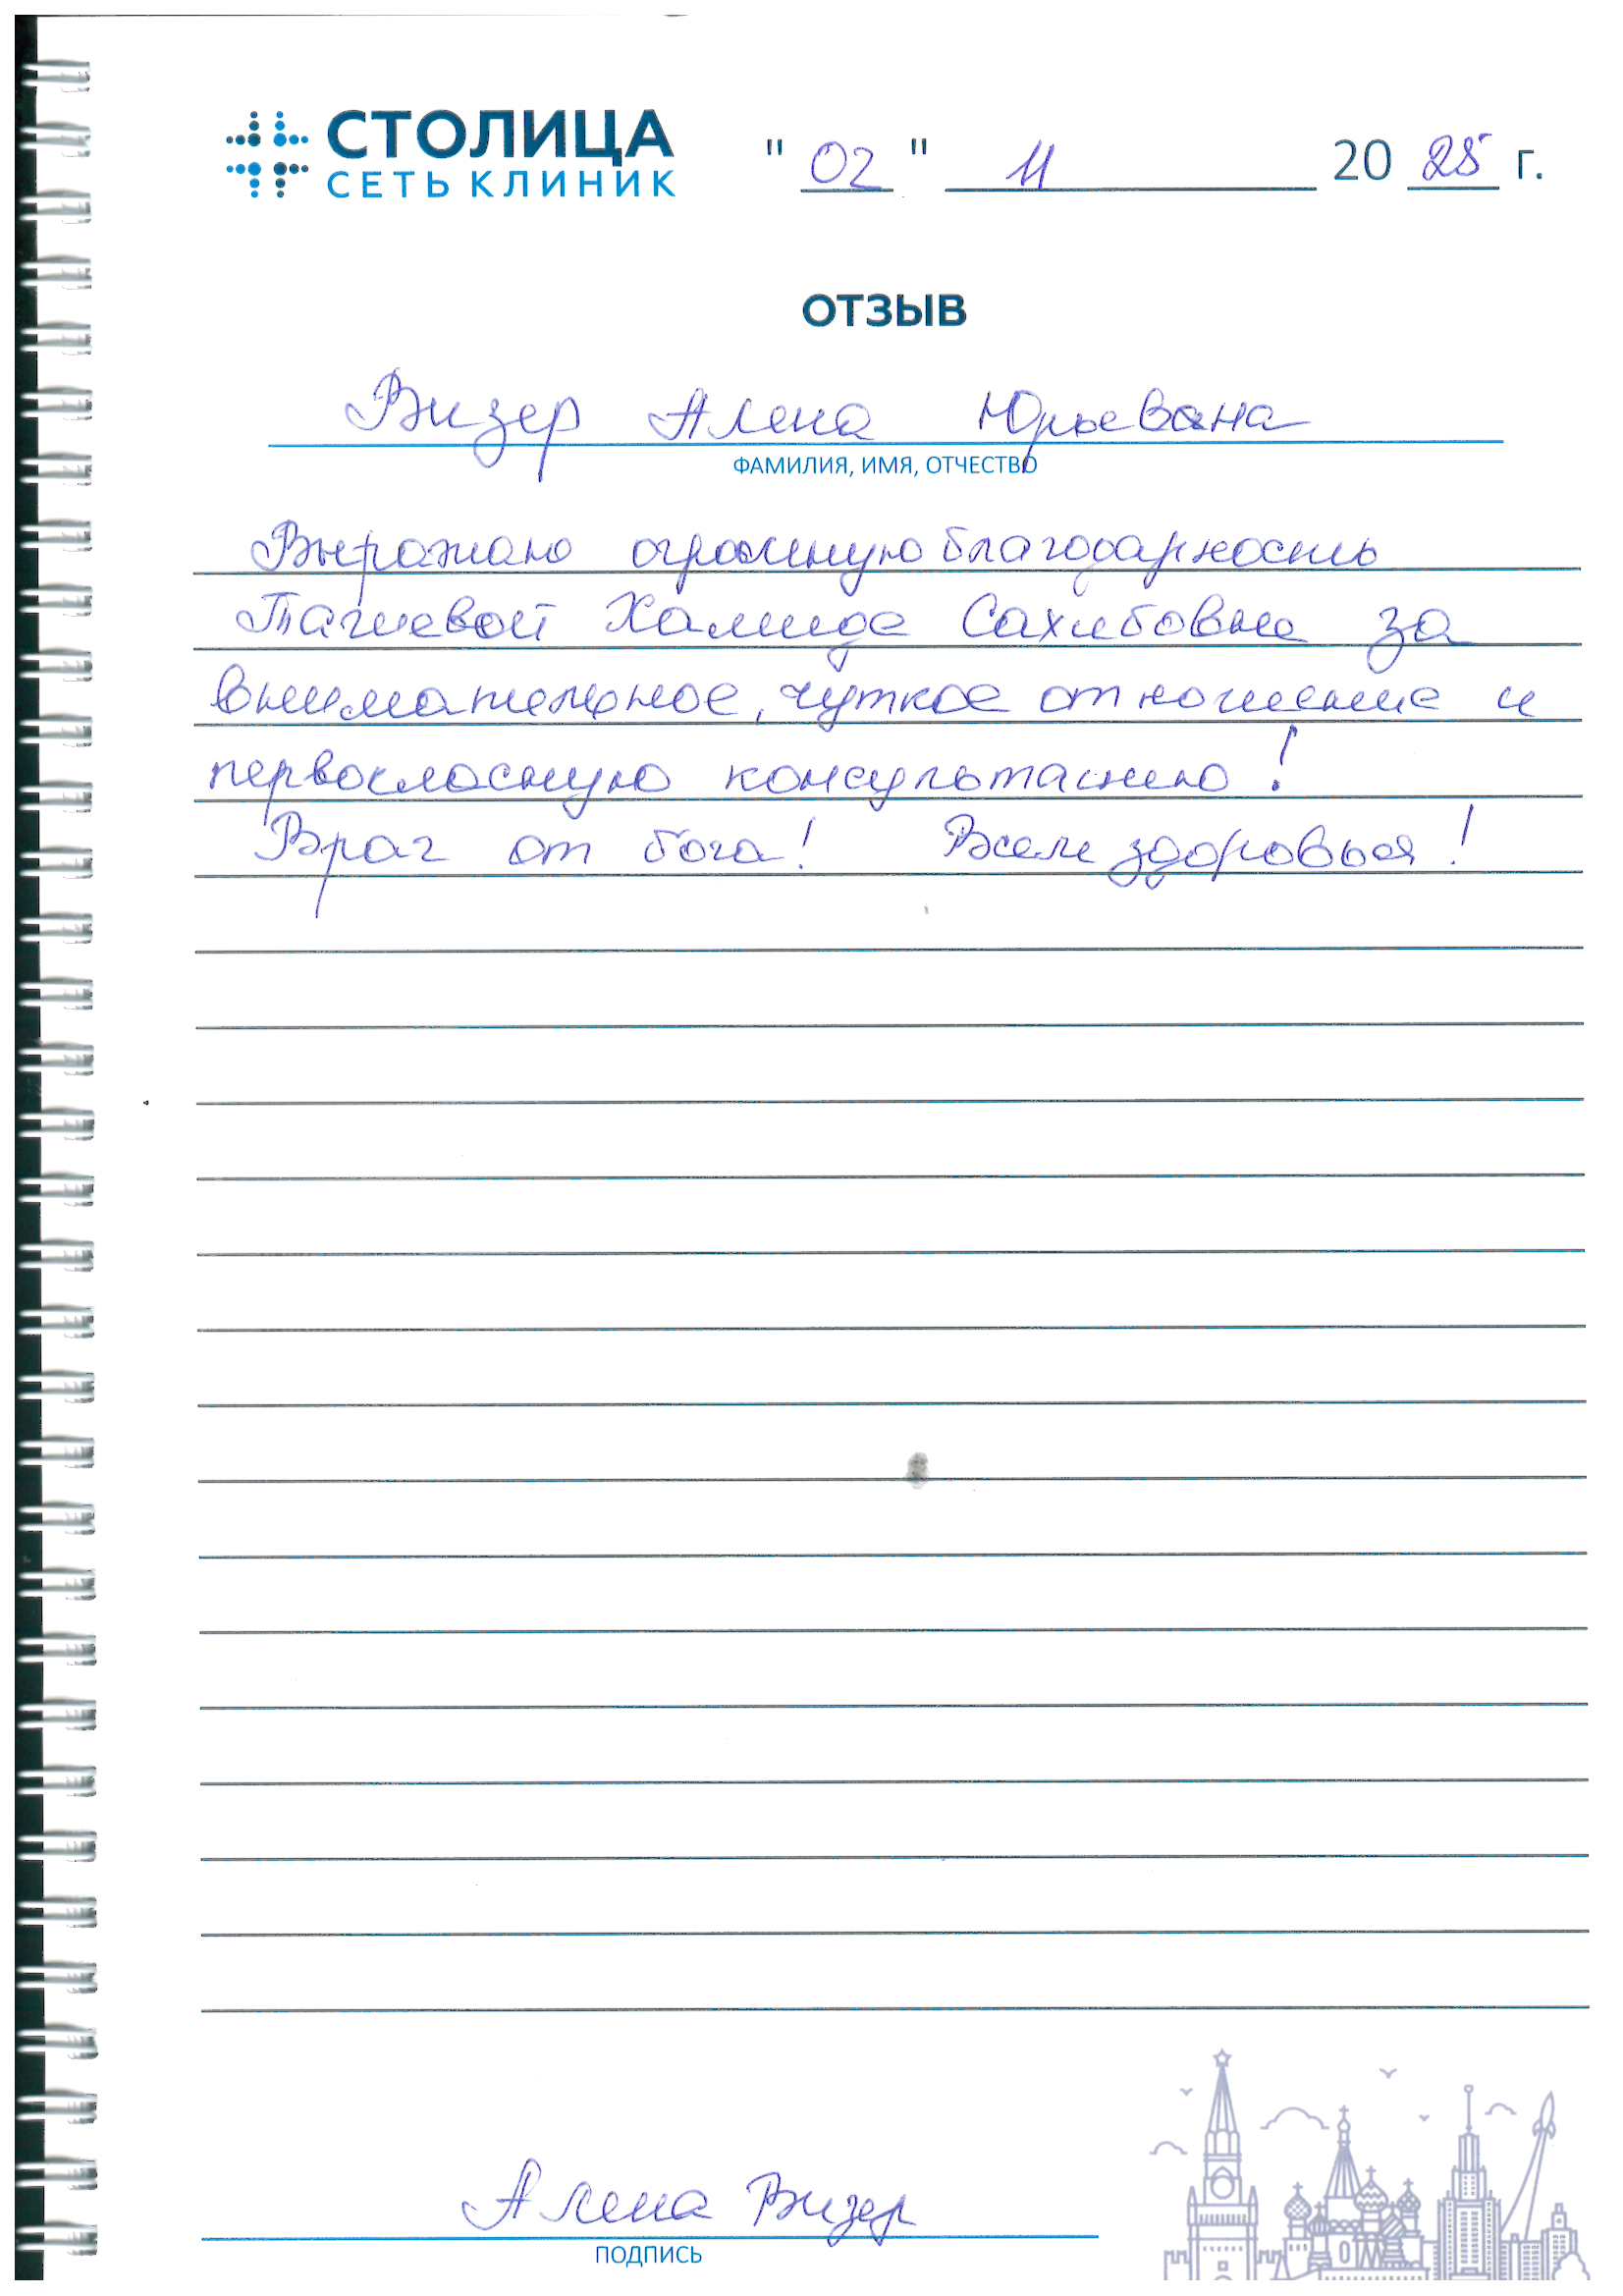 СТОЛИЦА
СЕТЬ КЛИНИК
"02" 11 2025 г.
ОТЗЫВ
Визер Алена Юрьевана
ФАМИЛИЯ, ИМЯ, ОТЧЕСТВО
Выражаю огромную благодарность
Тагиевой Халиде Сахибовне за
внимательное, чуткое отношение и
первоклассную консультацию!
Врач от бога! Всем здоровья!
Алена Визер
ПОДПИСЬ